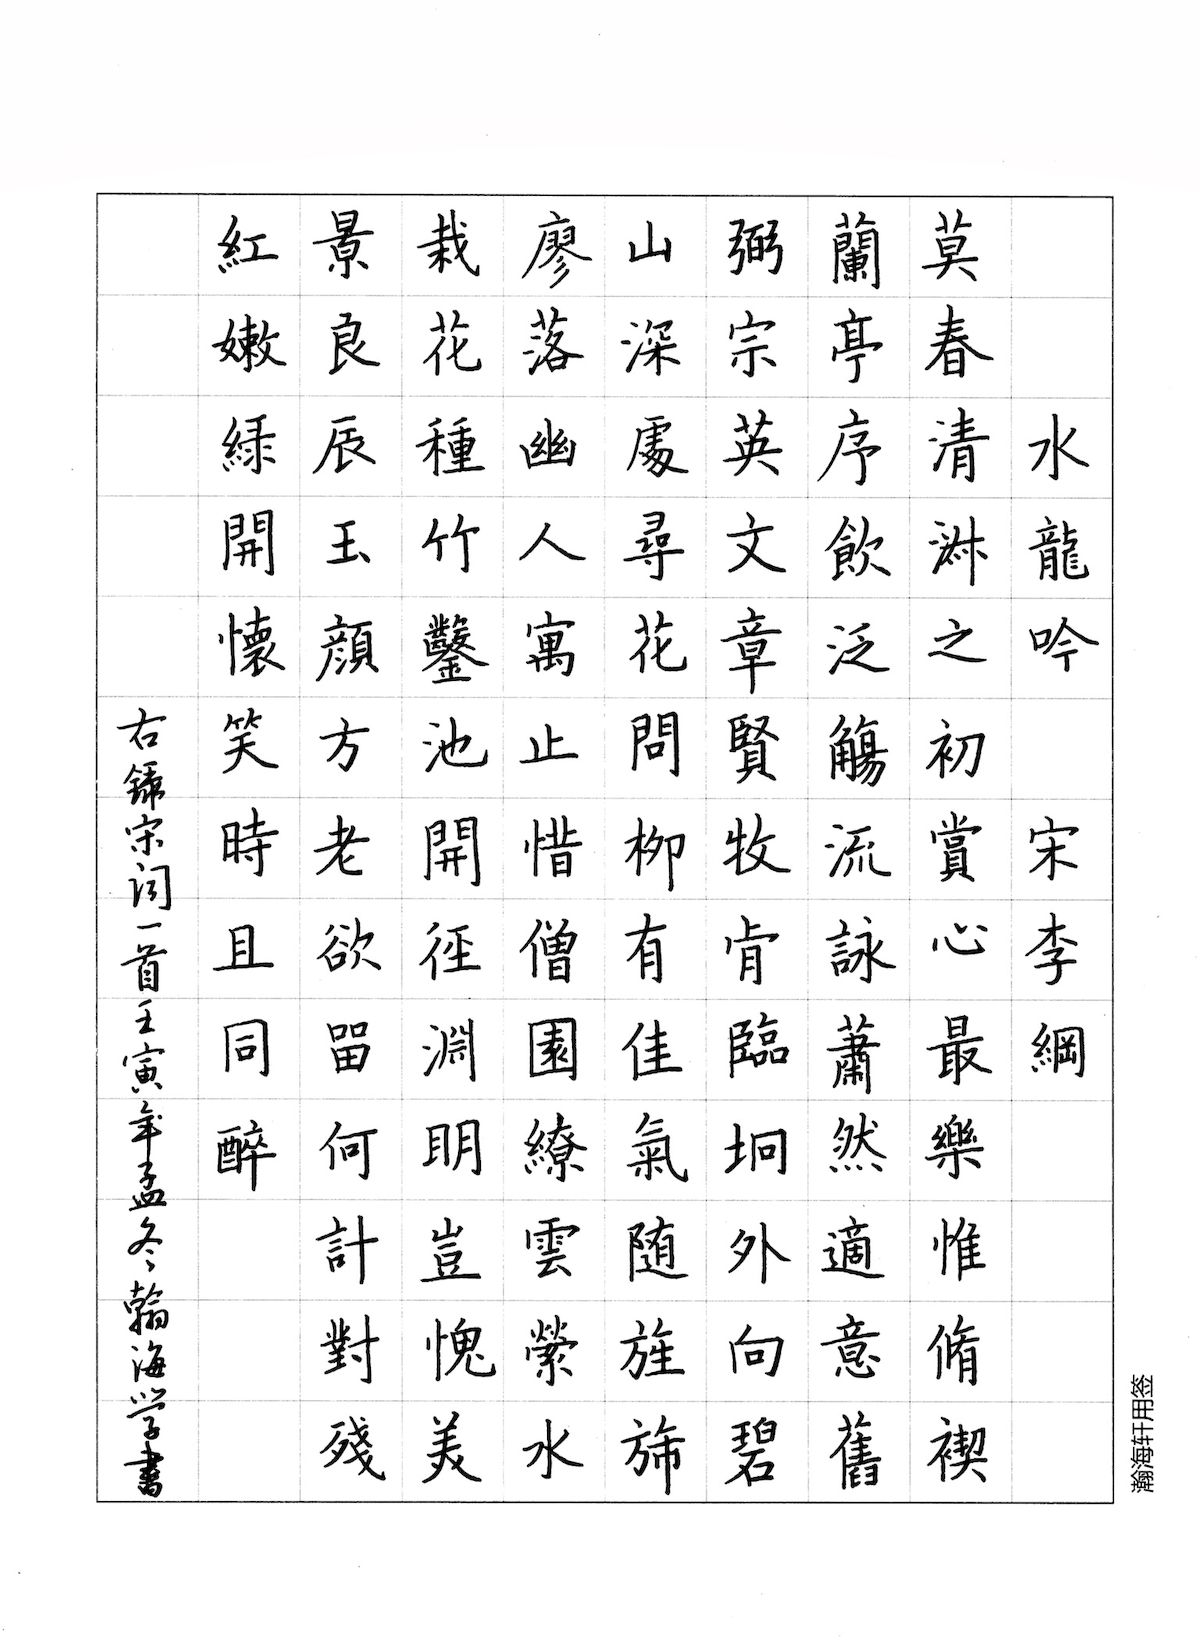 水龍吟 宋 李綱
莫春清淋之初賞心最樂惟脩禊
蘭亭序飲泛觴流詠蕭然適意舊
弼宗英文章賢牧肯臨坰外向碧
山深處尋花問柳有佳氣随旌旆
廖落幽人寓止惜僧園繚雲縈水
栽花種竹鑿池開徑淵明豈愧美
景良辰玉顔方老欲留何計對殘
紅嫩綠開懷笑時且同醉
右錄宋词一首壬寅年孟冬瀚海学書
瀚海轩用签